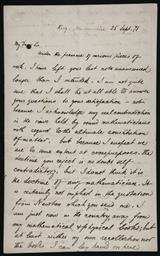 25 Sept. 71
My Dear Sir
Under the pressure of various pieces of
work, I have left your last note unanswered
longer than I intended. I am not quite
sure that I shall be at all able to answer
your questions to your satisfaction - not
because I acknowledge any real contradiction
in the views held by sound mathematicians
with regard to the ultimate constitution
of matter, but because I suspect we
are to some extent at cross purposes. The
doctrine you reject is no doubt self-
contradictory, but I do not think it is
the doctrine of any mathematician. It
is certainly not implied in the quotation
from Newton which you send me. I
am just now in the country away from
my mathematical & physical books, but
let
the books I can lay hand on here